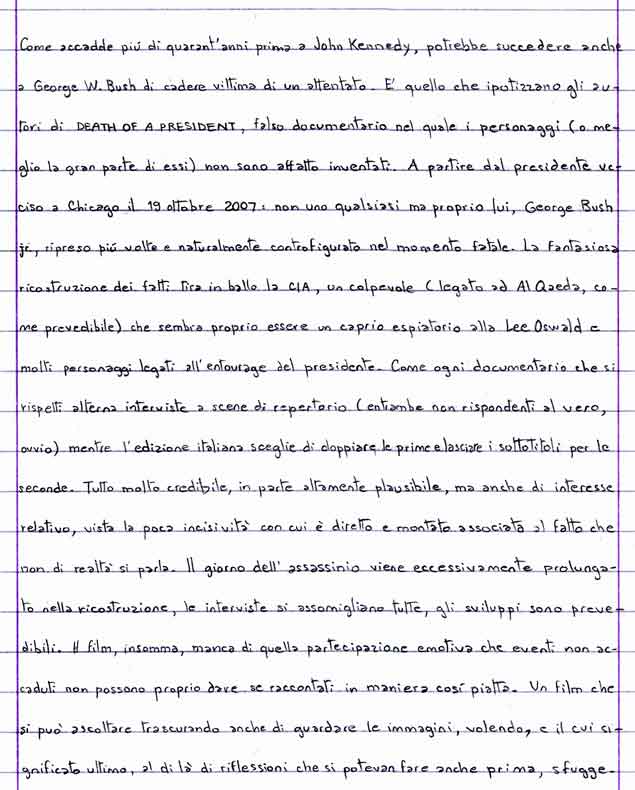 Come accadde piú di quarant'anni prima a John Kennedy, potrebbe succedere anche
a George W. Bush di cadere vittima di un attentato. E' quello che ipotizzano gli au-
tori di DEATH OF A PRESIDENT, falso documentario nel quale i personaggi (o me-
glio la gran parte di essi) non sono affatto inventati. A partire dal presidente uc-
ciso a Chicago il 19 ottobre 2007: non uno qualsiasi ma proprio lui, George Bush
jr, ripreso piú volte e naturalmente controfigurato nel momento fatale. La fantasiosa
ricostruzione dei fatti tira in ballo la CIA, un colpevole (legato ad Al Qaeda, co-
me prevedibile) che sembra proprio essere un caprio espiatorio alla Lee Oswald e
molti personaggi legati all'entourage del presidente. Come ogni documentario che si
rispetti alterna interviste a scene di repertorio (entrambe non rispondenti al vero,
ovvio) mentre l'edizione italiana sceglie di doppiare le prime e lasciare i sottotitoli per le
seconde. Tutto molto credibile, in parte altamente plausibile, ma anche di interesse
relativo, vista la poca incisività con cui è diretto e montato associata al fatto che
non di realtà si parla. Il giorno dell'assassinio viene eccessivamente prolunga-
to nella ricostruzione, le interviste si assomigliano tutte, gli sviluppi sono preve-
dibili. Il film, insomma, manca di quella partecipazione emotiva che eventi non ac-
caduti non possono proprio dare se raccontati in maniera cosí piatta. Un film che
si può ascoltare trascurando anche di guardare le immagini, volendo, e il cui si-
gnificato ultimo, al di là di riflessioni che si potevan fare anche prima, sfugge.